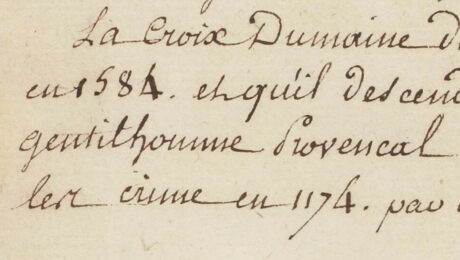 La Croix Dumaine d
en 1584. et qu'il descend
gentilhomme Provencal
en 1174. par